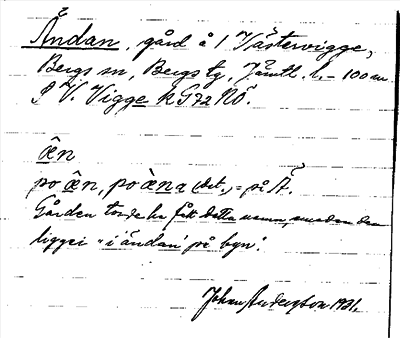 Ändan, gård å 1 Västervigge,
Bergs sn, Bergs tg, Jämtl. l. – 100 m
V. Vigge k G72 NÖ.
än
po än, po äna (det.) = på Ä.
Gården torde ha fått detta namn, emedan den
ligger "i ändan" på byn".
Johan Anderson 1921.